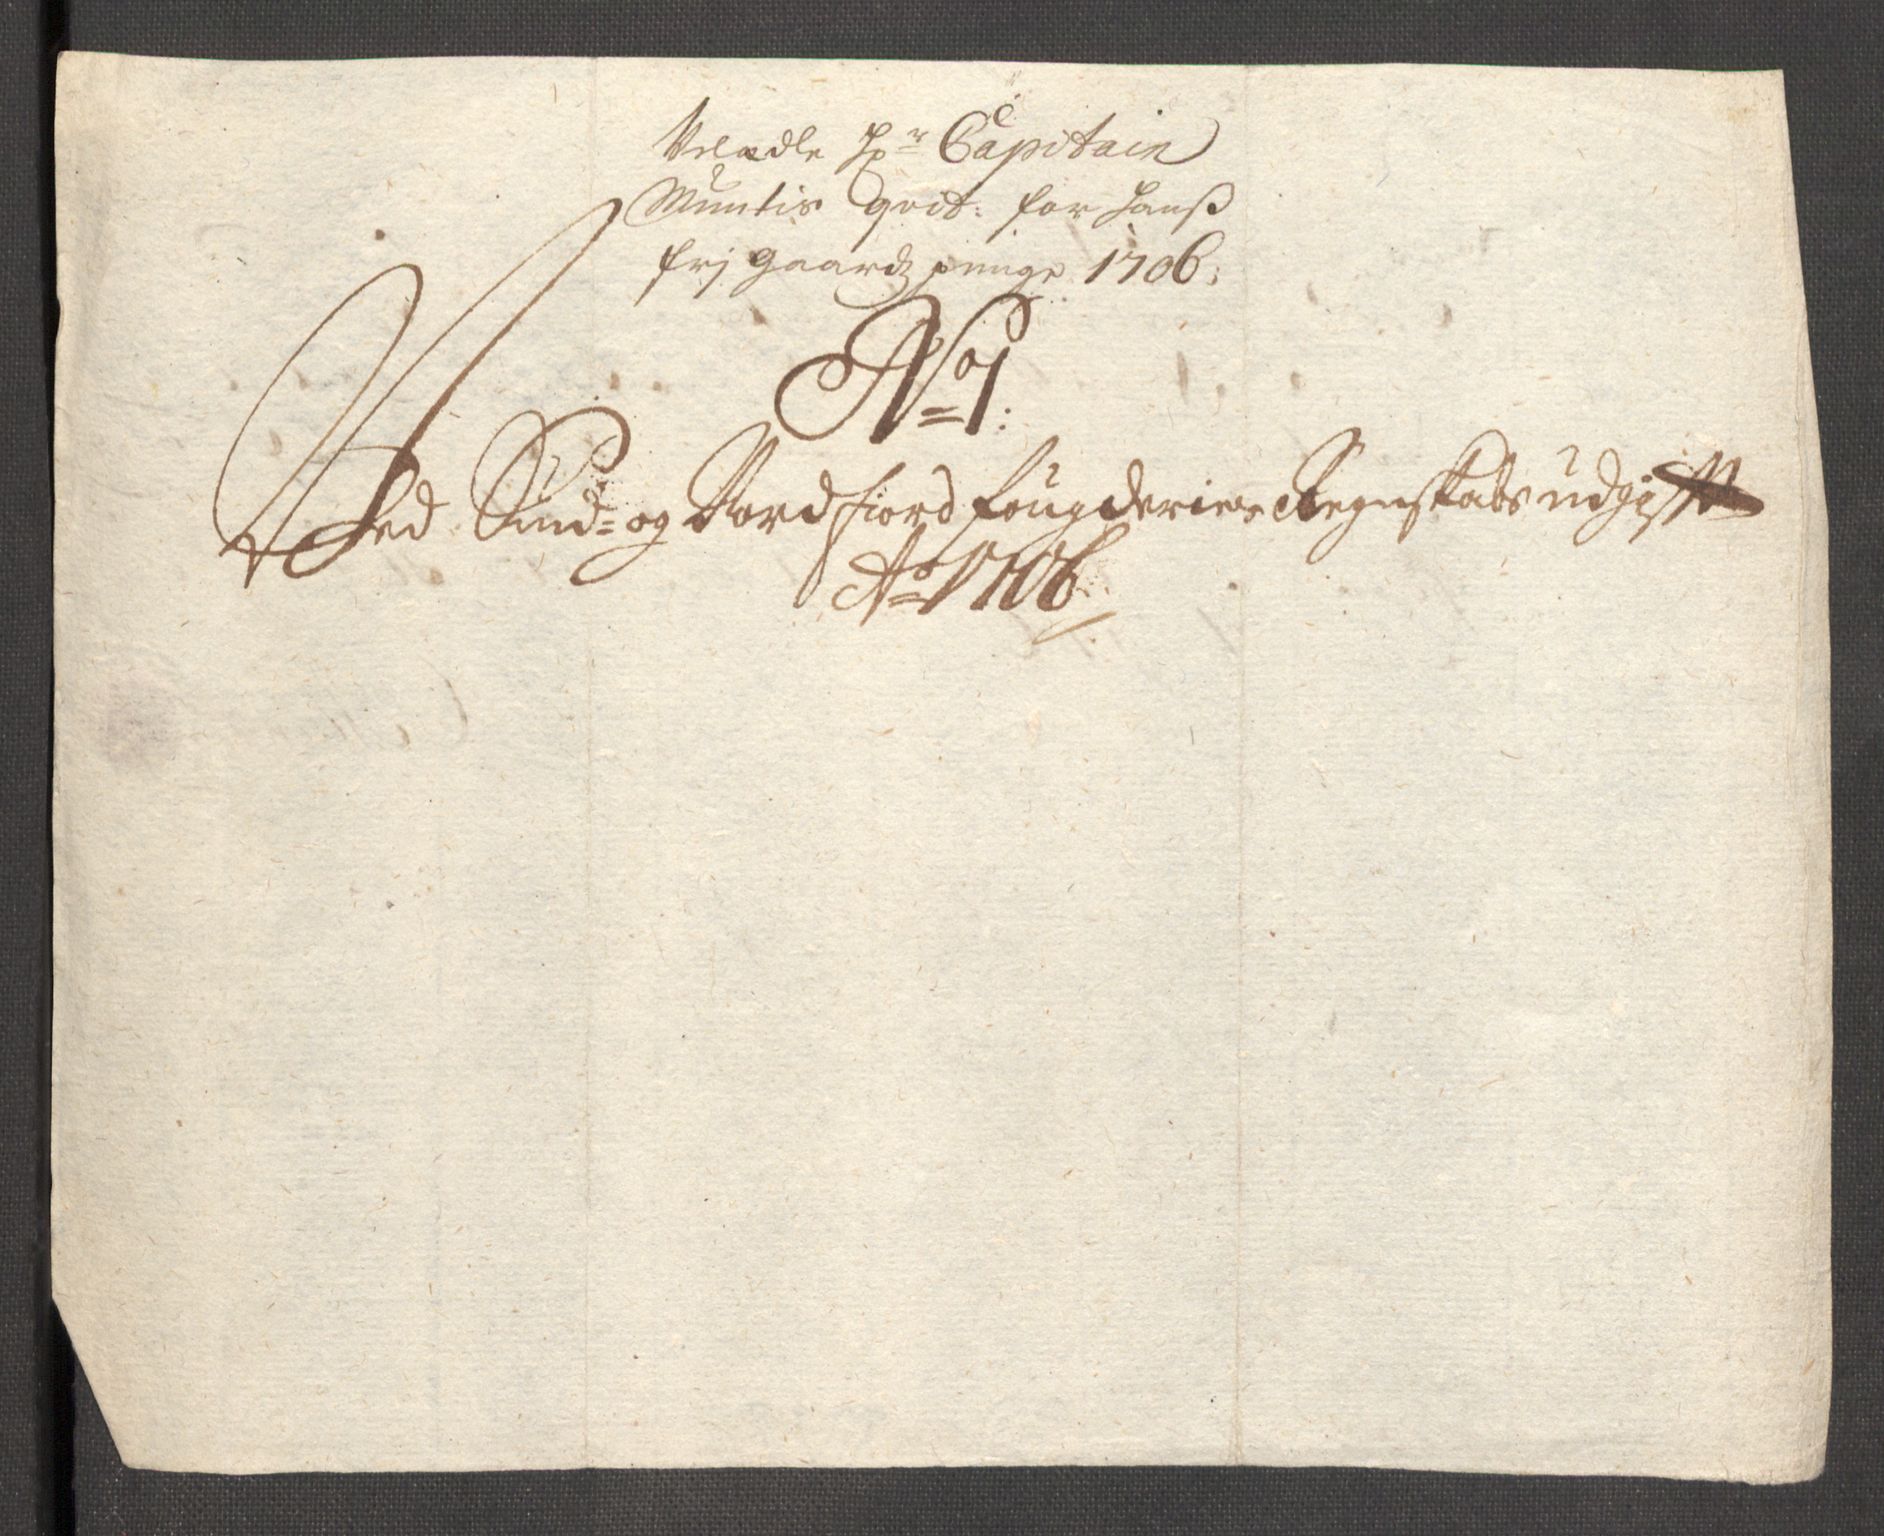 Velædle Hr Capitain
Muntis qvit: for hanß
frj gaardz penge 1706:
No 1:
Ved Sund= og Nordfiord fougderies Regnskabs udgifft
Ao 1706